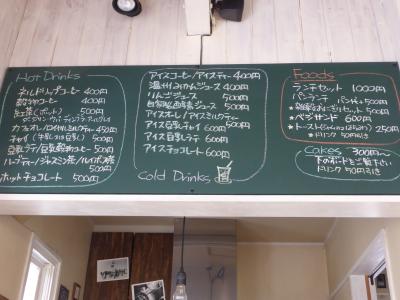 Hot Drinks
ネルドリップコーヒー 400円
穀物コーヒー 400円
紅茶(ポット) 500円
カフェオレ/ロイヤルミルクティー 450円
チャイ 500円
豆乳ラテ/豆乳穀物コーヒー 500円
ハーブティー/ジャスミン茶/ルイボス茶
500円
ホットチョコレート 500円
アイスコーヒー/アイスティー 400円
温州みかんジュース 400円
りんごジュース 500円
自家製梅ジュース 500円
アイスオーレ/アイスミルクティー
500円
アイス豆乳チャイ 600円
アイス豆乳ラテ 600円
アイスチョコレート 600円
Cold Drinks
Foods
ランチセット 1000円
パンランチ パン代+500円
500円
★ベジサンド 600円
★トースト 250円
★ドリンク 50円引き
Cakes 300円〜
下のボードをご覧下さい
ドリンク 50円引き